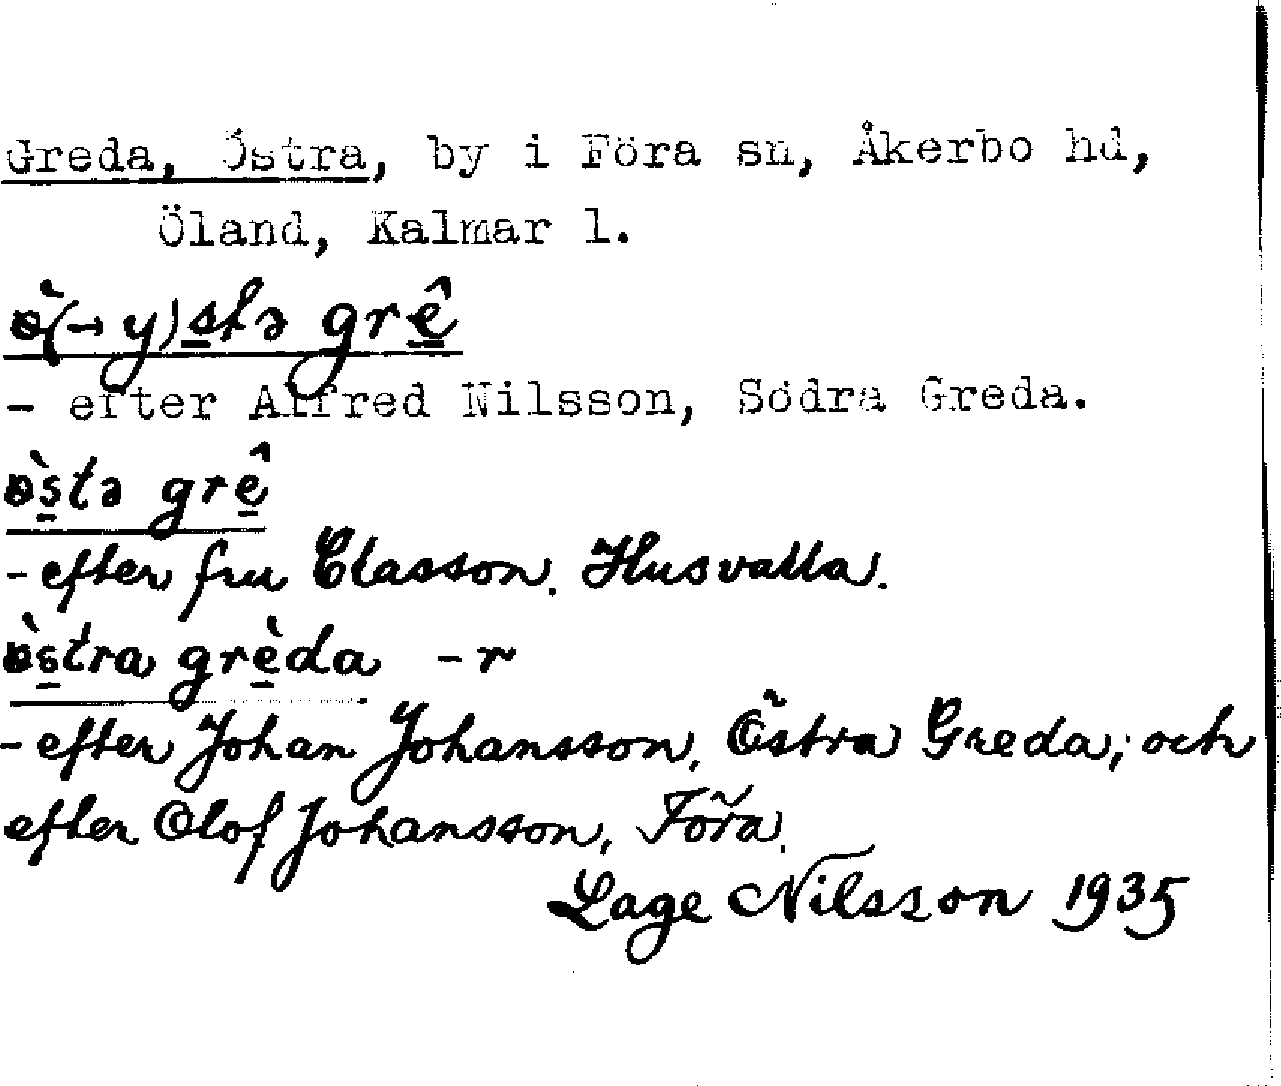 Greda, Östra, by i Föra sn, Åkerbo hd,
Öland, Kalmar l.
ɵ̀(→y)stə grê
- efter Alfred Nilsson, Södra Greda.
ɵ̀stə grê
- efter fru Classon, Husvalla.
ɵ̀stra grèda -r
- efter Johan Johansson, Östra Greda; och
efter Olof Johansson, Föra.
Lage Nilsson 1935